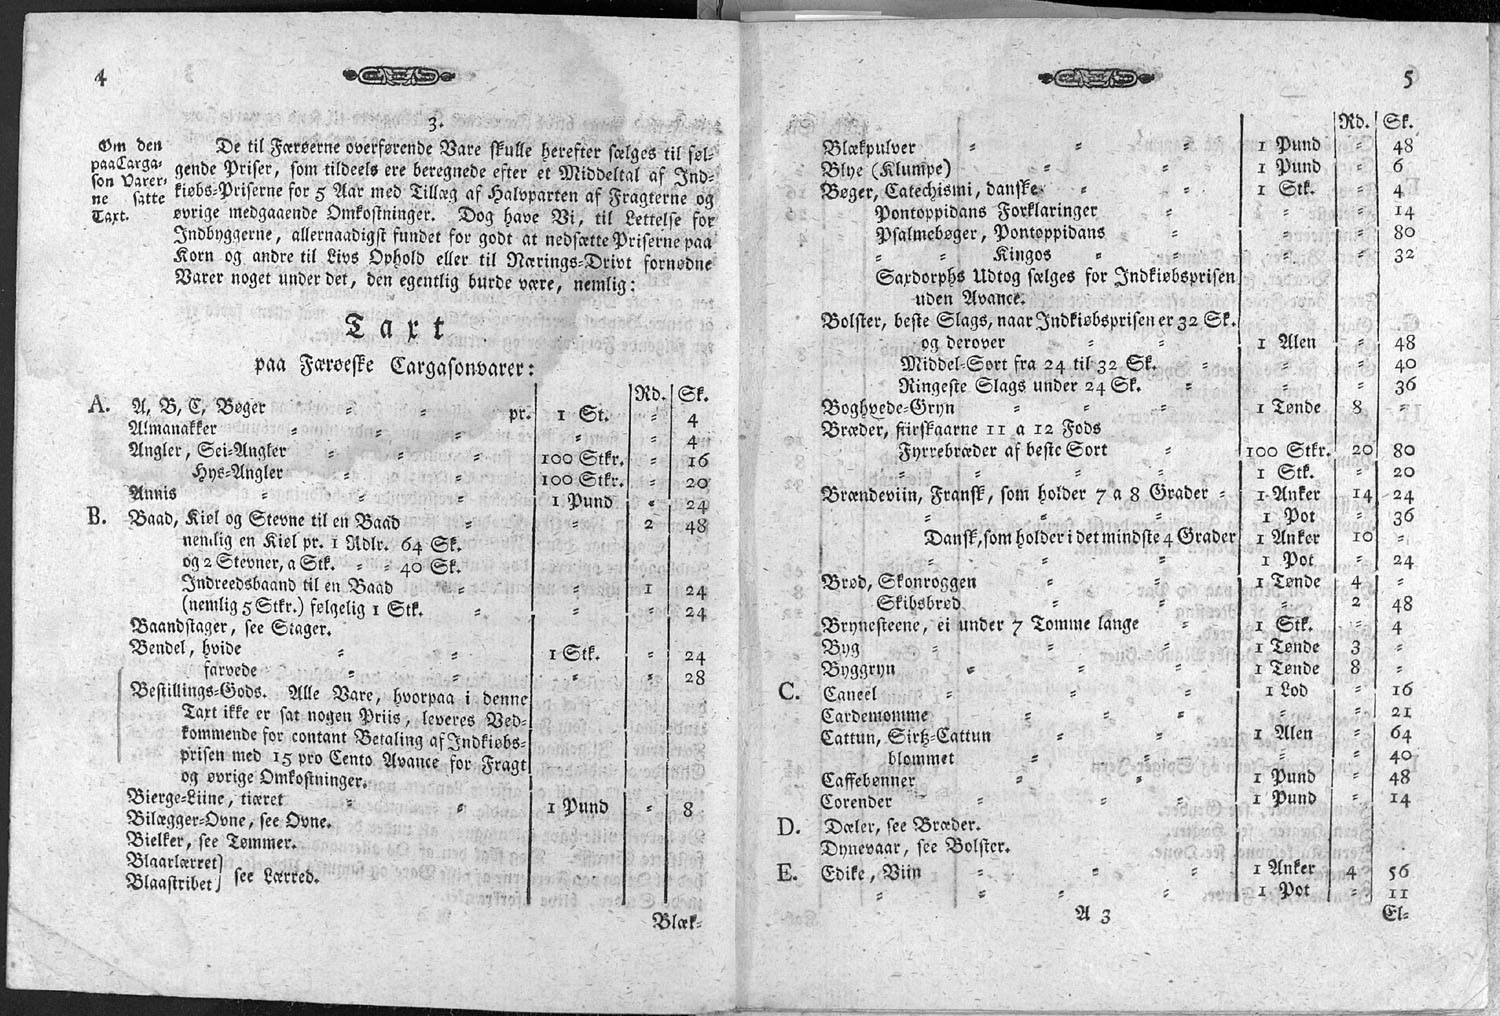 4
3.
Om den
paa Carga-
son Varer-
ne satte
Taxt.
De til Færøerne overførende Vare skulle herefter sælges til føl-
gende Priser, som tildeels ere beregnede efter et Middeltal af Ind-
kiøbs-Priserne for 5 Aar med Tillæg af Halvparten af Fragterne og
øvrige medgaaende Omkostninger. Dog have Vi, til Lettelse for
Indbyggerne, allernaadigst fundet for godt at nedsætte Priserne paa
Korn og andre til Livs Ophold eller til Nærings-Drivt fornødne
Varer noget under det, den egentlig burde være, nemlig:
Taxt
paa Færøeske Cargasonvarer:
Rd. Sk.
A. A, B, C, Bøger = = pr. 1 St. = 4
Almanakker = = = = = 4
Angler, Sei-Angler = = = 100 Stkr. = 16
Hys-Angler = = = 100 Stkr. = 20
Annis = = = 1 Pund = 24
B. Baad, Kiøl og Stevne til en Baad = = 2 48
nemlig en Kiøl pr. 1 Rdlr. 64 Sk.
og 2 Stevner, a Stk. = 40 Sk.
Indreedsbaand til en Baad = = 1 24
(nemlig 5 Stkr.) følgelig 1 Stk. = = = 24
Baandstager, see Stager.
Bendel, hvide = = 1 Stk. = 24
farvede = = = = 28
Bestillings-Gods. Alle Vare, hvorpaa i denne
Taxt ikke er sat nogen Priis, leveres Ved-
kommende for contant Betaling af Indkiøbs-
prisen med 15 pro Cento Avance for Fragt
og øvrige Omkostninger.
Bierge-Liine, tiæret = = 1 Pund = 8
Bilægger-Ovne, see Ovne.
Bielker, see Tømmer.
Blaarlærret
Blaastribet } see Lærred.
Blæk-
5
Rd. Sk.
Blækpulver = = = 1 Pund = 48
Blye (Klumpe) = = = 1 Pund = 6
Bøger, Catechismi, danske = = 1 Stk. = 4
Pontoppidans Forklaringer = = = 14
Psalmebøger, Pontoppidans = = = 80
= = Kingos = = = = 32
Saxdorphs Udtog sælges for Indkiøbsprisen
uden Avance.
Bolster, beste Slags, naar Indkiøbsprisen er 32 Sk.
og derover = = 1 Alen = 48
Middel-Sort fra 24 til 32 Sk. = = = 40
Ringeste Slags under 24 Sk. = = = 36
Boghvede-Gryn = = = 1 Tønde 8 =
Bræder, fiirskaarne 11 a 12 Fods
Fyrrebræder af beste Sort = 100 Stkr. 20 80
= = = 1 Stk. = 20
Brændeviin, Fransk, som holder 7 a 8 Grader = 1 Anker 14 24
= = = 1 Pot = 36
Dansk, som holder i det mindste 4 Grader 1 Anker 10 =
= = = 1 Pot = 24
Brød, Skonroggen = = = 1 Tønde 4 =
Skibsbrød = = = 2 48
Brynesteene, ei under 7 Tomme lange = 1 Stk. = 4
Byg = = = 1 Tønde 3 =
Byggryn = = = 1 Tønde 8 =
C. Caneel = = = 1 Lod = 16
Cardemomme = = = = = 21
Cattun, Sirtz-Cattun = = 1 Alen = 64
blommet = = = = 40
Caffebønner = = = 1 Pund = 48
Corender = = = 1 Pund = 14
D. Dæler, see Bræder.
Dynevaar, see Bolster.
E. Edike, Viin = = = 1 Anker 4 56
= = = = 1 Pot = 11
A 3
El-